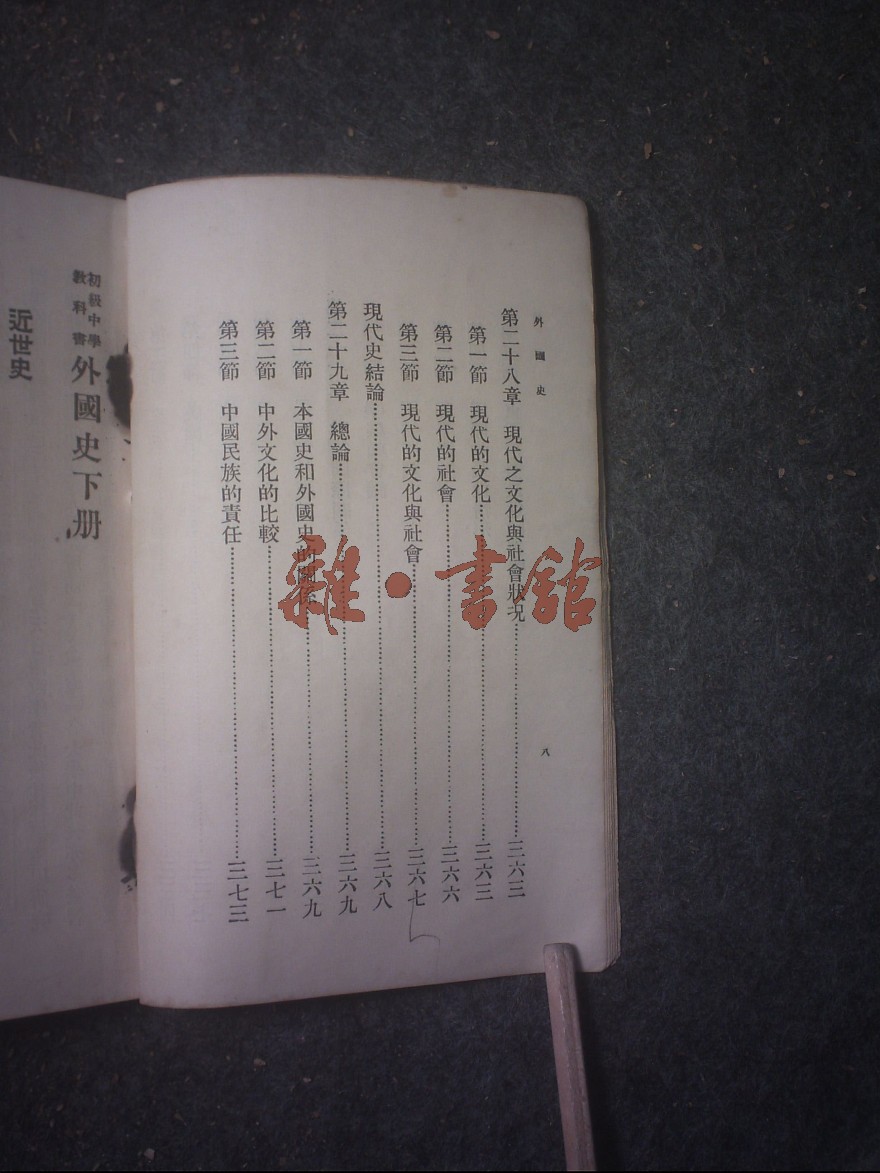 外國史
八
第二十八章 現代之文化與社會狀況……三六三
第一節 現代的文化……三六三
第二節 現代的社會……三六六
第三節 現代的文化與社會……三六七
現代史結論……三六八
第二十九章 總論……三六九
第一節 本國史和外國史的關係……三六九
第二節 中外文化的比較……三七一
第三節 中國民族的責任……三七三
初級中學
教科書
外國史下册
近世史
雜·書館